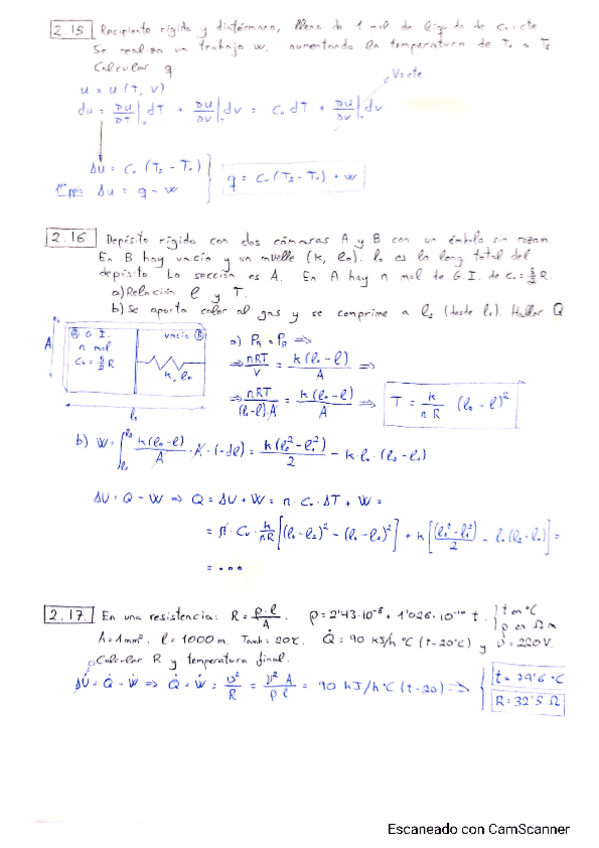 2.15 Recipiente rígido y diatérmano, lleno de 1 mol de líquido de Cv = cte
Se realiza un trabajo w. aumentando la temperatura de T₁ a T₂
Calcular q.
V=cte
u = u (T, V)
du = ∂U/∂T|ᵥ dT + ∂U/∂V| dv = Cv dT + ∂U/∂V| dv
Δu = Cv (T₂ - T₁)
1er ppio Δu = q - w
q = Cv (T₂ - T₁) + w
2.16 Depósito rígido con dos cámaras A y B con un émbolo sin rozam
En B hay vacío y un muelle (k, l₀). l₀ es la long total del
depósito. La sección es A. En A hay n mol de G.I. de Cv = R.
a) Relación l y T.
b) Se aporta calor al gas y se comprime a l₂ (desde l₁). Hallar Q
A G.I.
n mol
Cv = R
vacío B
k, l₀
A
l₀
a) PA = PB =>
=> nRT/V = k(l₀-l)/A =>
=> nRT/(l₀-l)A = k(l₀-l)/A =>
T = k/nR (l₀-l)²
b) W = ∫ k(l₀-l)/A · A · (-dl) = k(l₂²-l₁²)/2 - k l₀ · (l₂-l₁)
ΔU = Q - W => Q = ΔU + W = n · Cv · ΔT + W =
= n · Cv · k/nR [(l₀-l₂)² - (l₀-l₁)²] + k [(l₂²-l₁²)/2 - l₀(l₂-l₁)] =
= ...
2.17. En una resistencia: R = ρ·l/A. ρ = 2'43·10⁻⁸ + 1'026·10⁻¹⁰ t. t en °C
ρ en Ω m
A = 1 mm². l = 1000 m. Tamb = 20°C. Q̇ = 90 kJ/h °C (t - 20°C) y v = 220V.
Calcular R y temperatura final.
ΔU̇ = Q̇ - Ẇ => Q̇ = Ẇ = v²/R = v² A/ρ l = 90 kJ/h°C (t-20) =>
t = 79'6 °C
R = 32'5 Ω
Escaneado con CamScanner